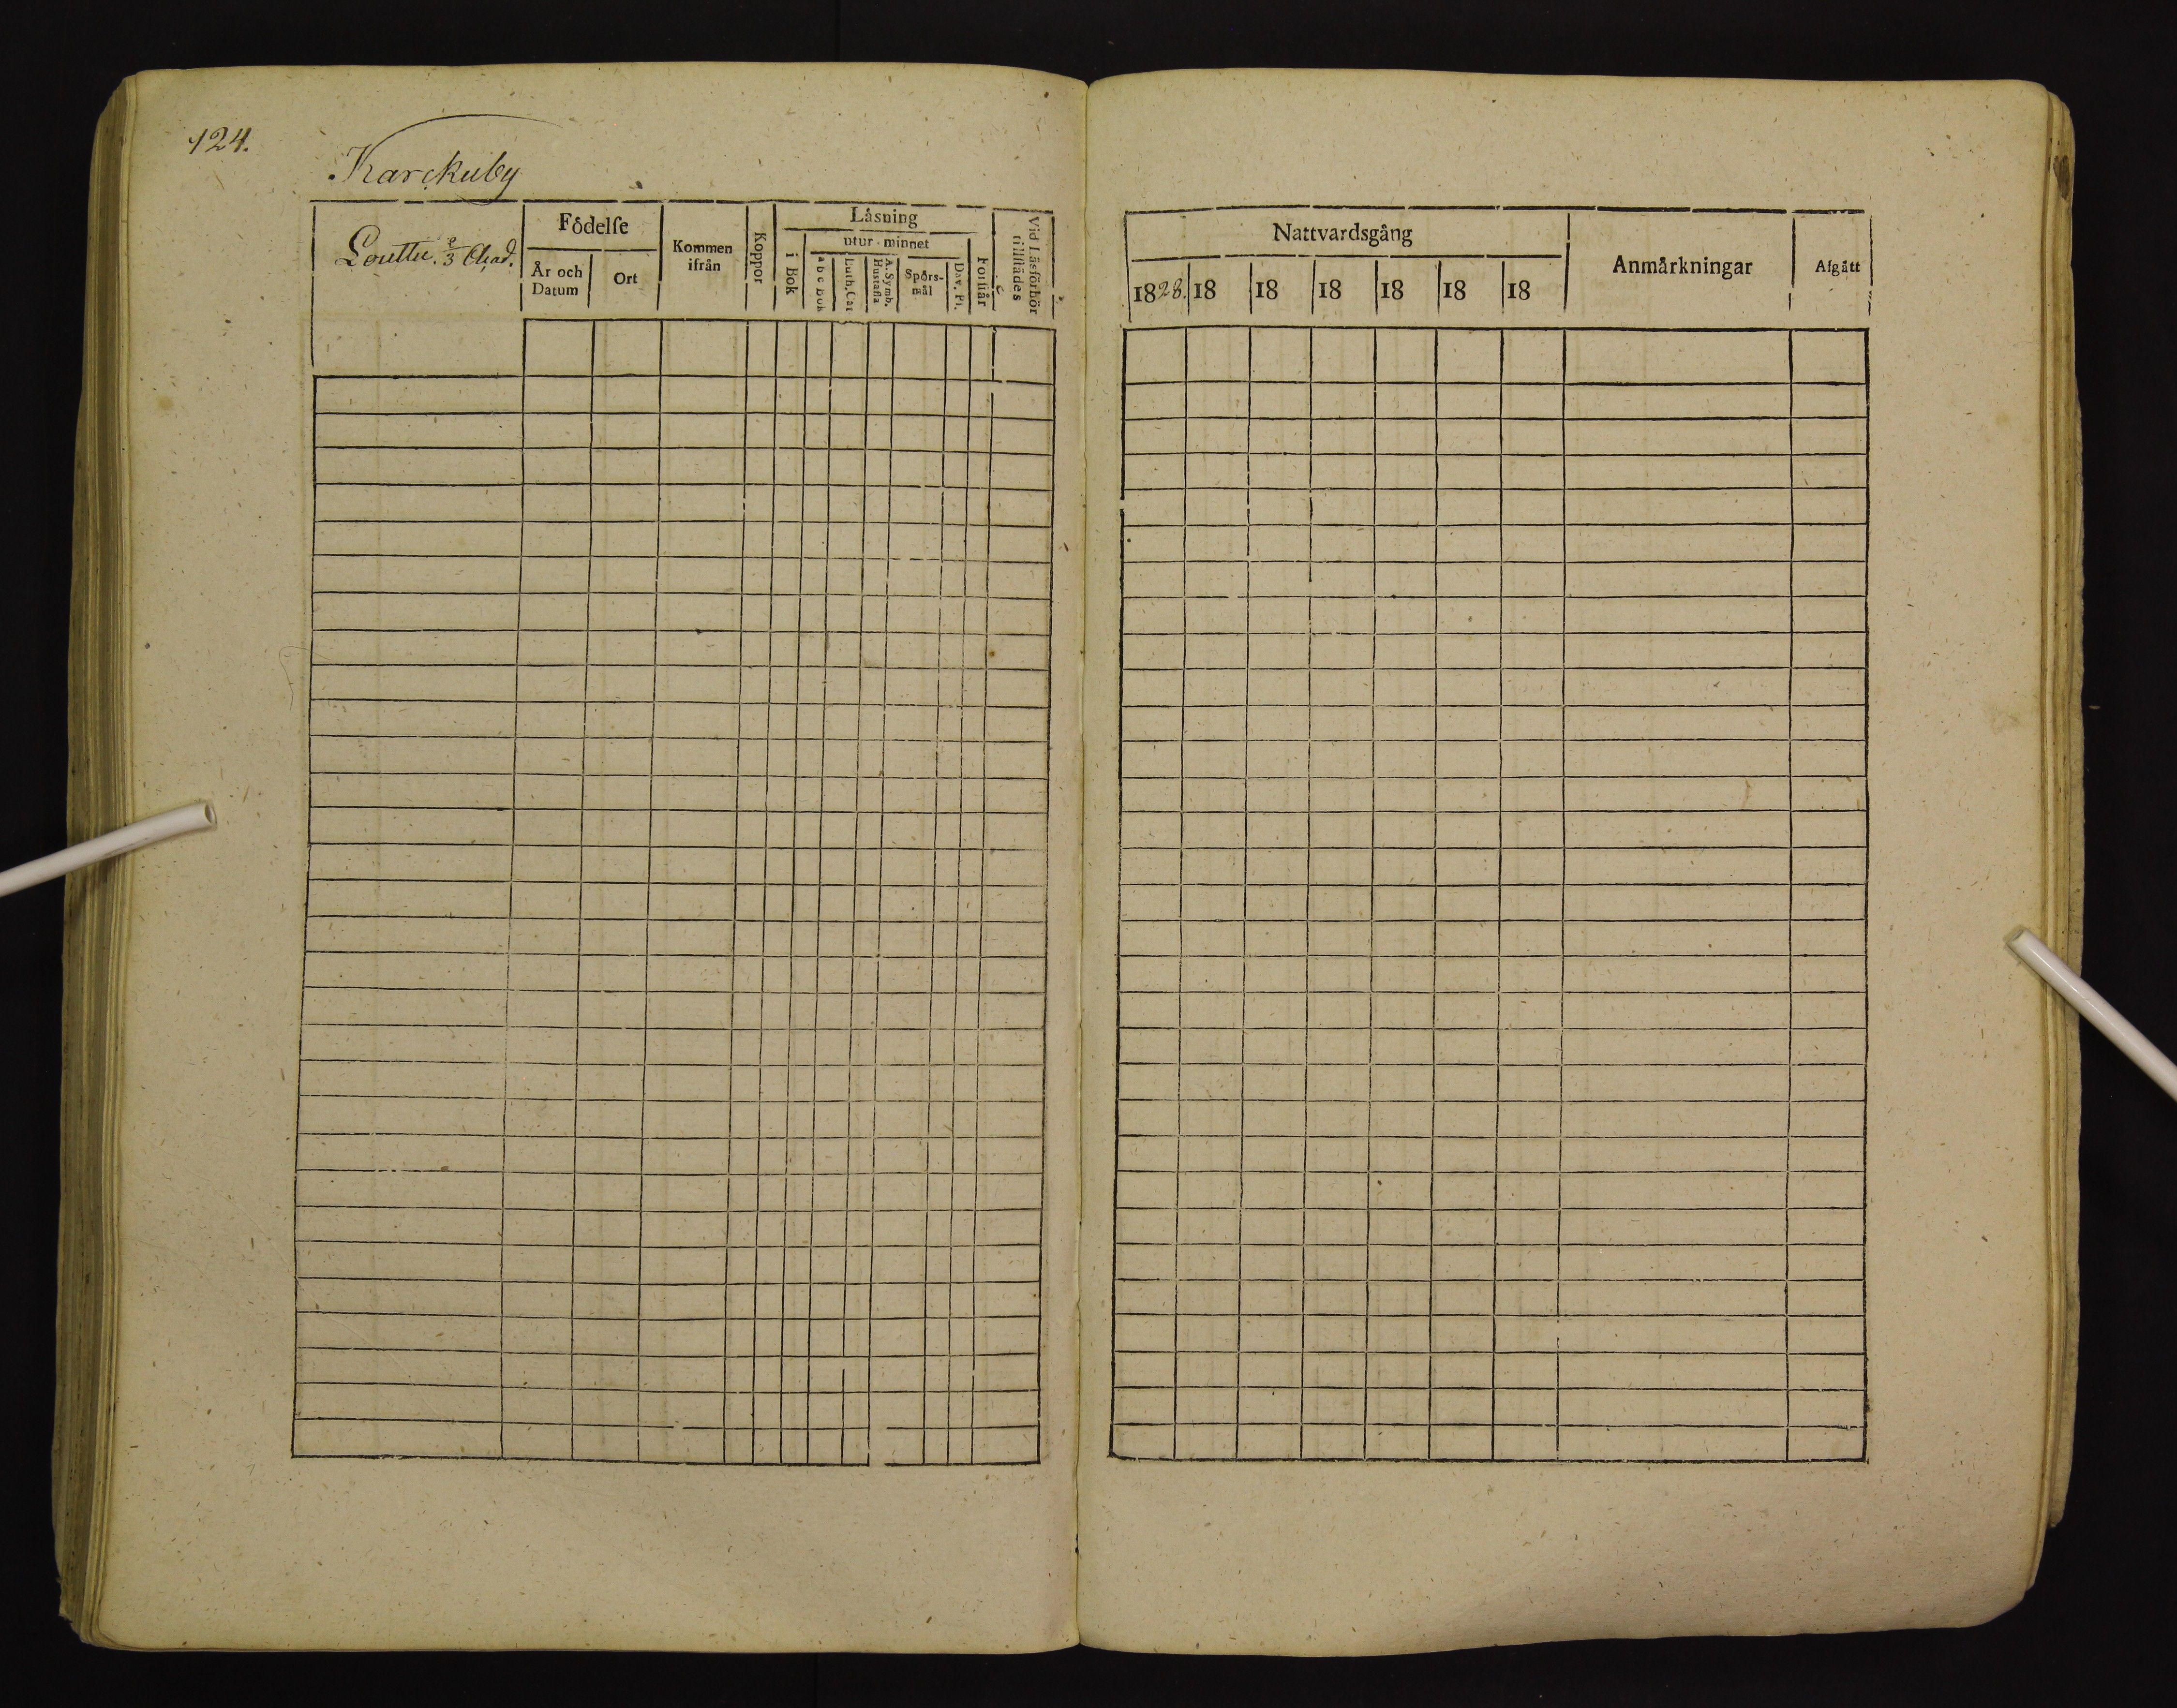 124.
Karckuby
Louttu. 2/3 Skad.
Fôdelſe
År och Datum
Ort
Kommen ifrån
Koppor
Låsning
i Bok
utur minnet
a b c Bok
Luth. Cat
A. Symb. Hustafla
Spôrsmål
Dav. Pſ.
Förſtår
Vid Läsförhör tillſtädes
Nattvardsgång
1828.
18
18
18
18
18
18
Anmårkningar
Afgått